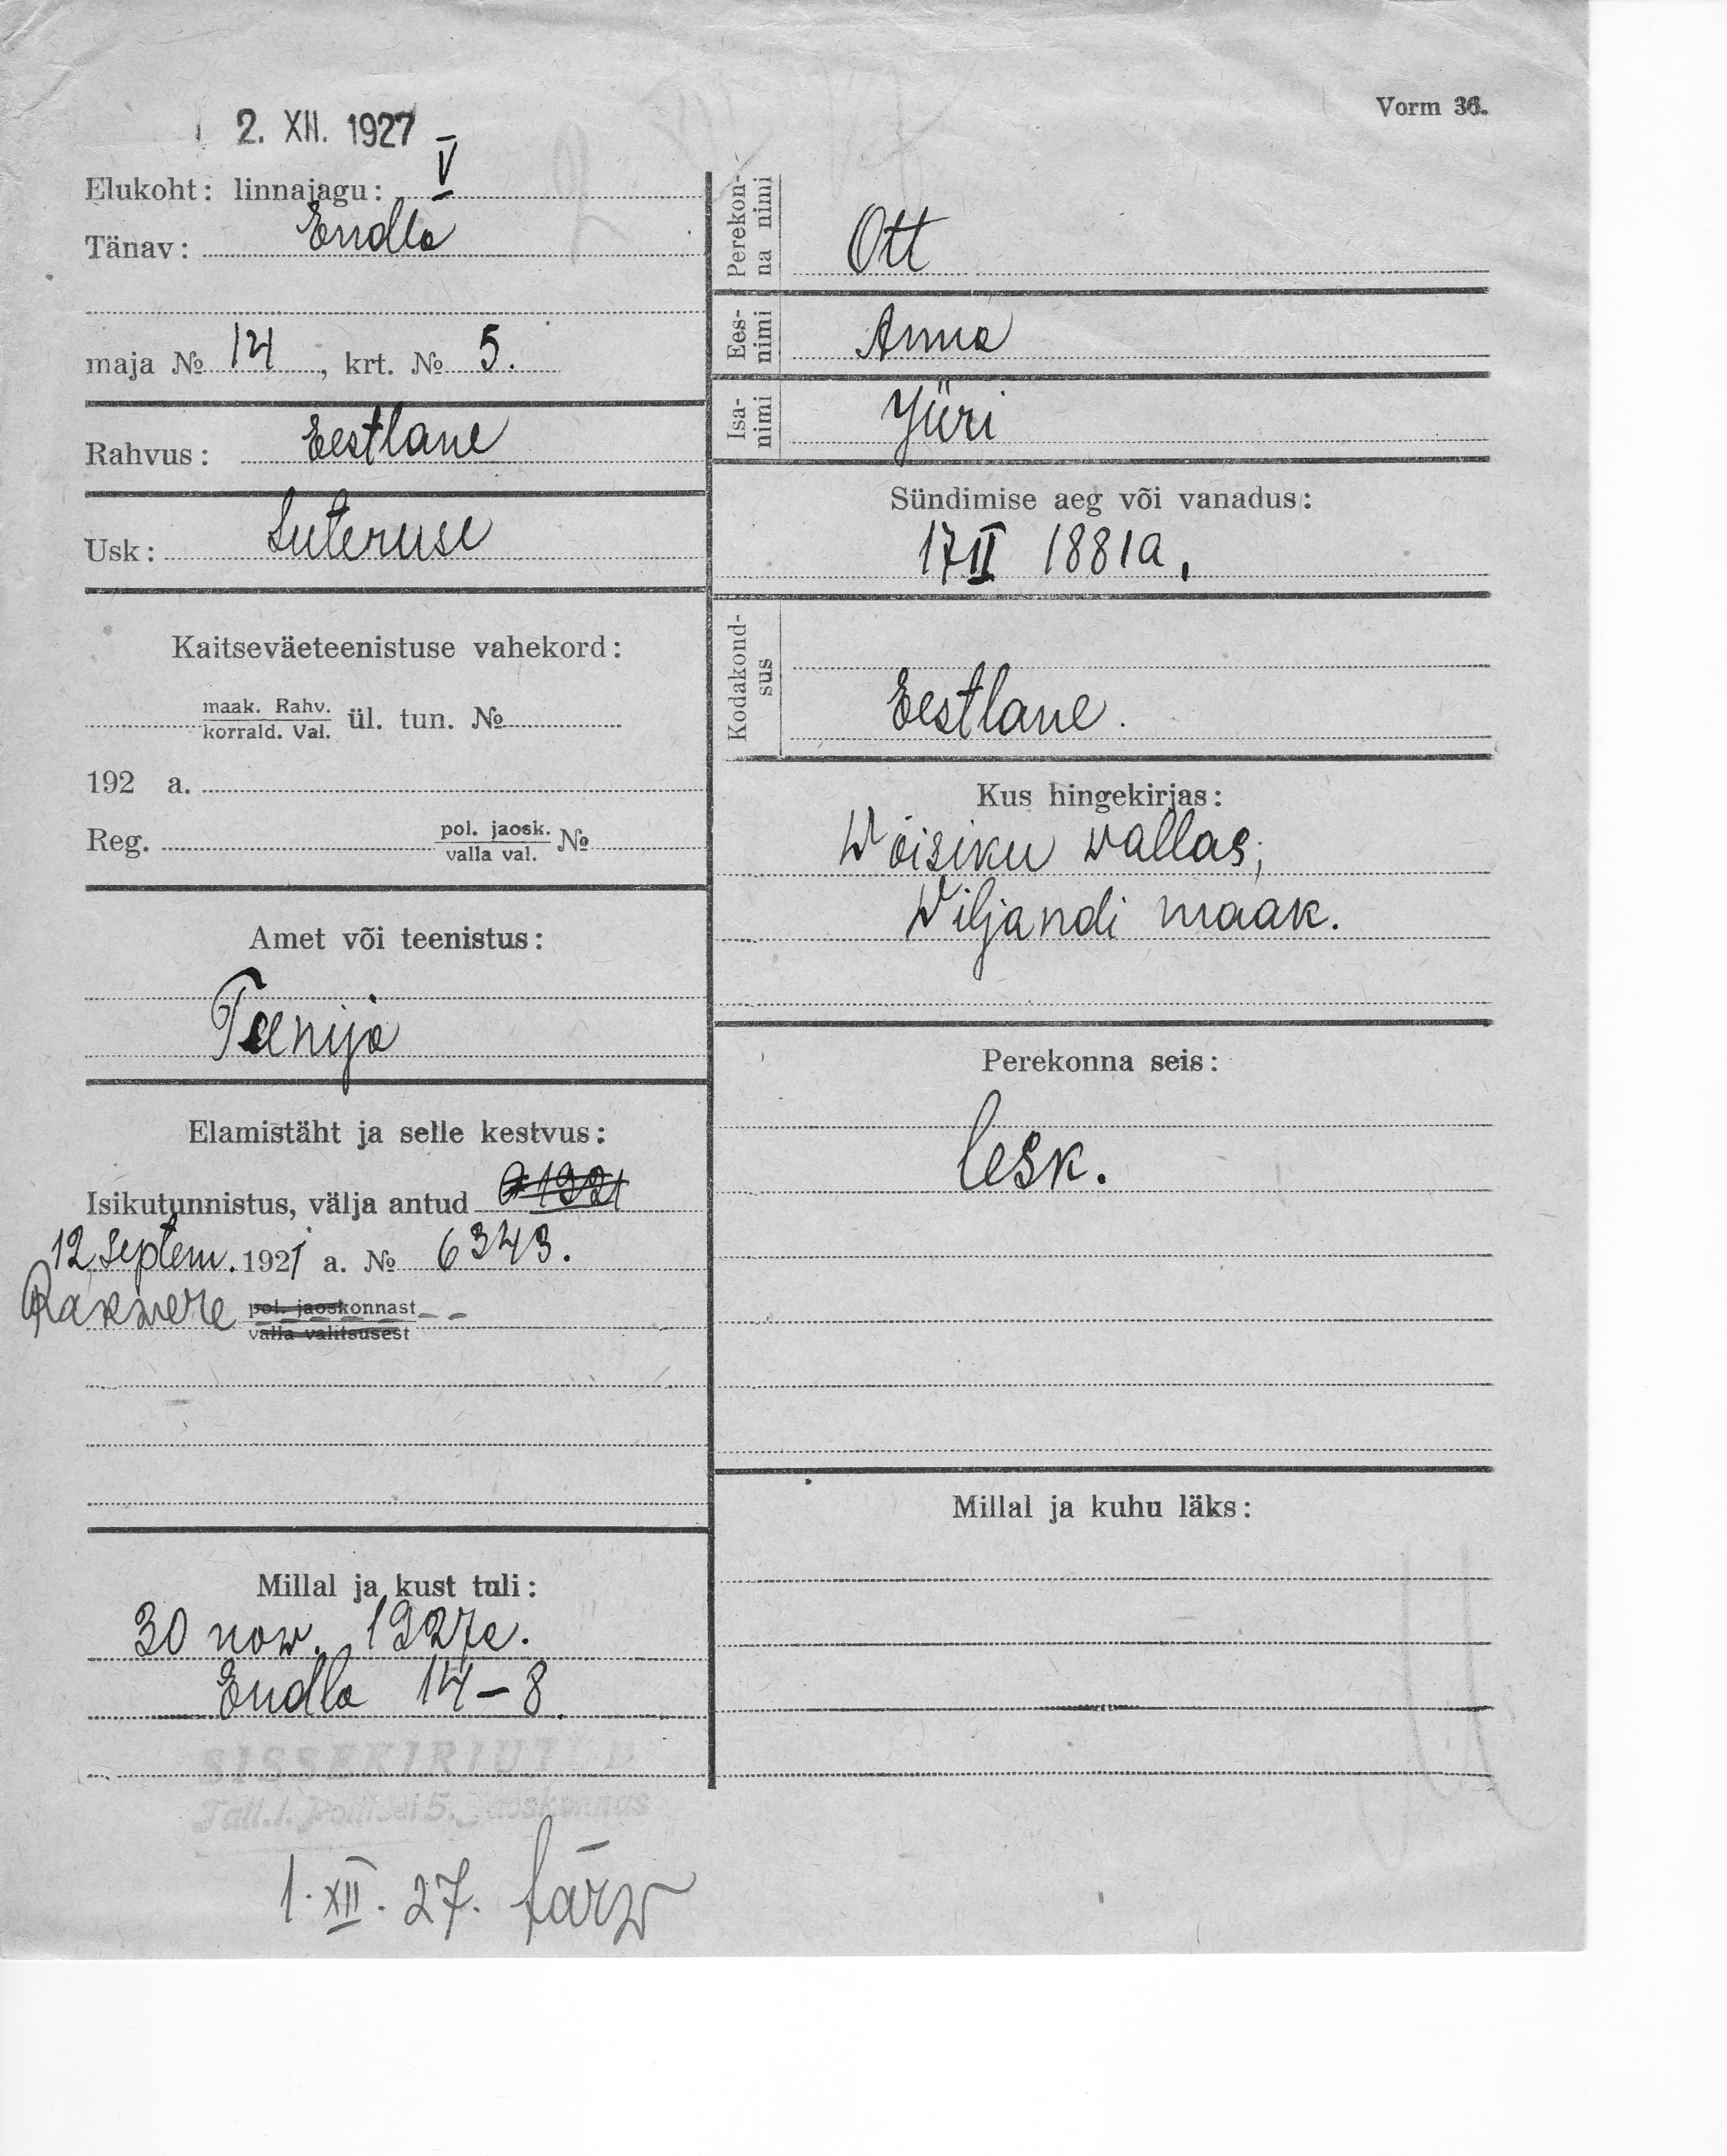 2. XII. 1927
Vorm 36.
Elukoht: linnajagu: V
Tänav: Endla
maja № 14, krt. № 5.
Rahvus: Eestlane
Usk: Luteruse
Kaitseväeteenistuse vahekord:
maak. Rahv.
korrald. Val. ül. tun. №
192 a.
Reg. pol. jaosk.
valla val. №
Amet või teenistus:
Teenija
Elamistäht ja selle kestvus:
Isikutunnistus, välja antud 1921
12 septem. 1921 a. № 6343.
Rakwere pol. jaoskonnast
valla valitsusest
Millal ja kust tuli:
30 now. 1927a.
Endla 14-8.
SISSEKIRJUT
Tall.l. Politsei 5. Jaoskonnas
1. XII. 27.
Perekon-
na nimi
Ott
Ees-
nimi
Anna
Isa-
nimi
Jüri
Sündimise aeg või vanadus:
17 II 1881a.
Kodakond-
sus
Eestlane.
Kus hingekirjas:
Wõisiku wallas;
Wiljandi maak.
Perekonna seis:
lesk.
Millal ja kuhu läks: